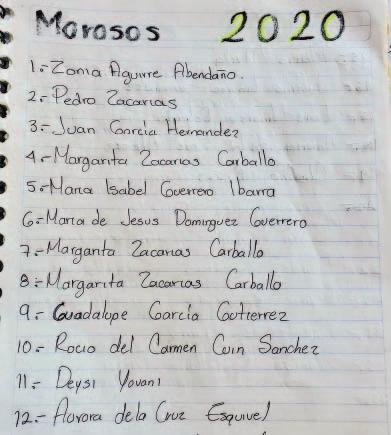 Morosos 2020
1.- Zonia Aguirre Abendaño.
2.- Pedro Zacarias
3.- Juan Garcia Hernandez
4.- Margarita Zacarias Carballo
5.- Maria Isabel Guerrero Ibarra
6.- Maria de Jesus Dominguez Guerrero
7.- Margarita Zacarias Carballo
8.- Margarita Zacarias Carballo
9.- Guadalupe Garcia Gutierrez
10.- Rocio del Carmen Cuin Sanchez
11.- Deysi Yovani
12.- Aurora dela Cruz Esquivel